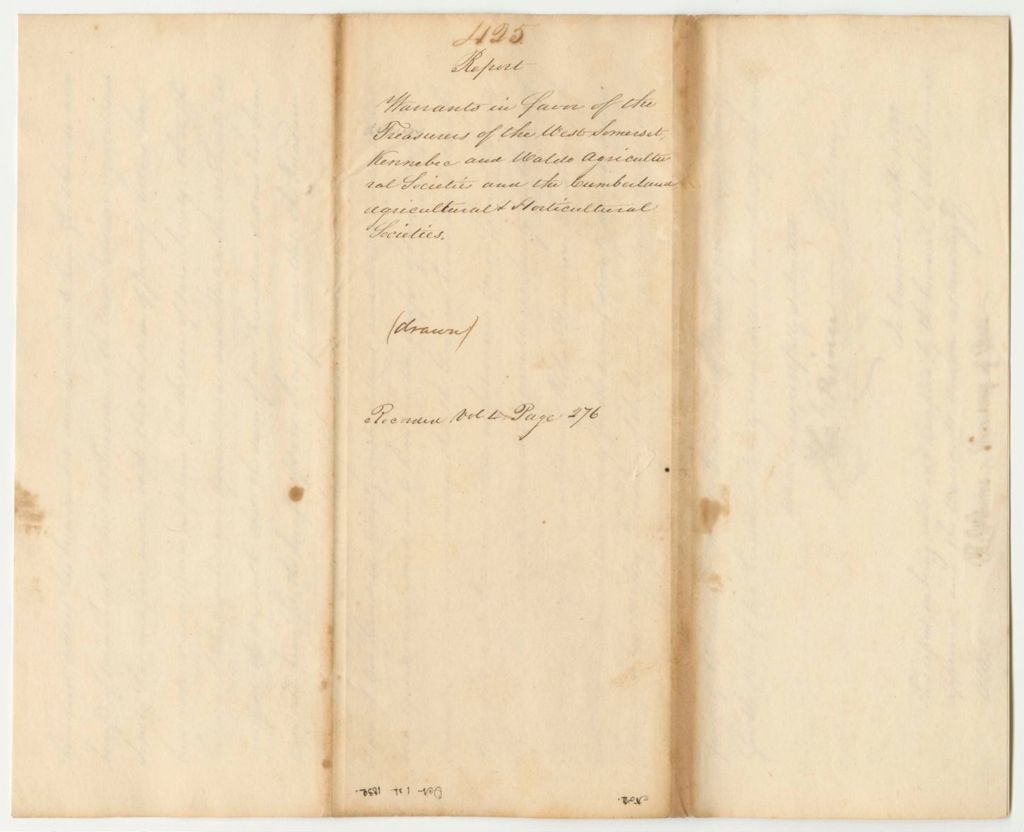 425
Report
Warrants in favor of the
Treasurers of the West Somerset,
Kennebec and Waldo Agricultu
ral Societies and the Cumberland
agricultural & Horticultural
Societies.
(drawn)
Recorded Vol 4 Page 276
Oct 1st 1832.
No 2.